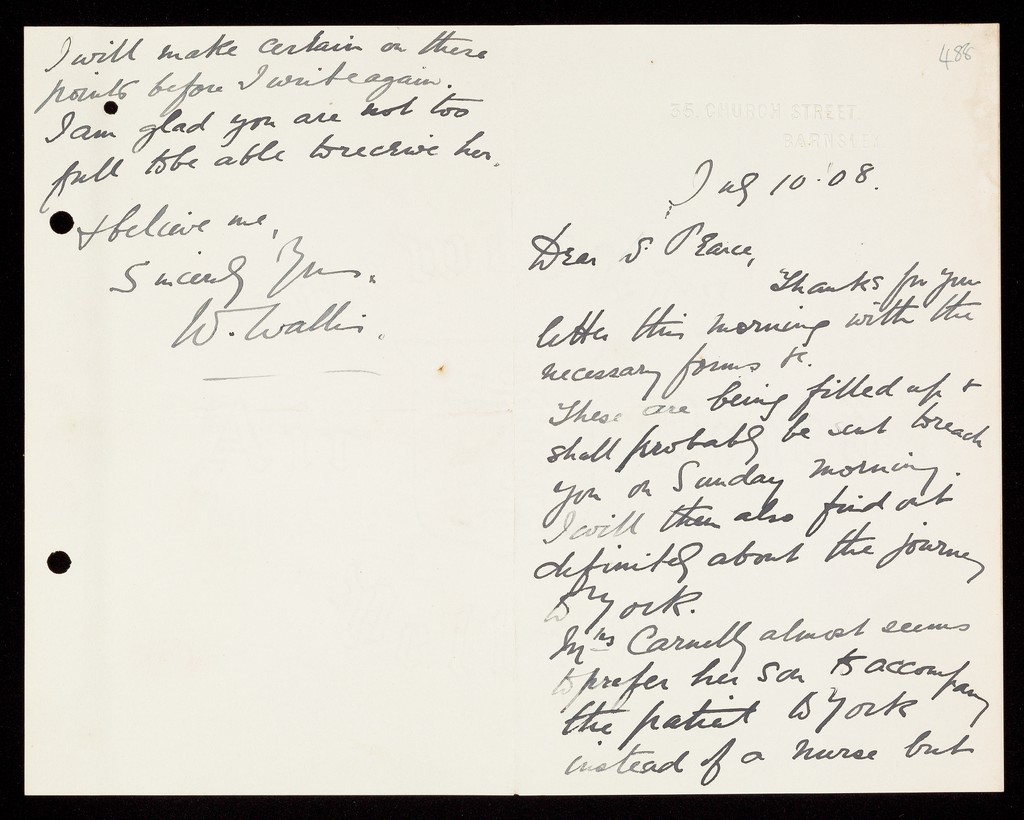 488
35, CHURCH STREET
BARNSLEY
July 10·08.
Dear Dr. Pearce,
Thanks for your
letter this morning with the
necessary forms &c.
These are being filled up &
shall probably be sent to reach
you on Sunday morning.
I will then also find out
definitely about the journey
to York.
Mrs Carnelly almost seems
to prefer her son to accompany
the patient to York
instead of a nurse but
I will make certain on these
points before I write again.
I am glad you are not too
full to be able to receive her.
& believe me,
Sincerely Yours.
W. Wallis.